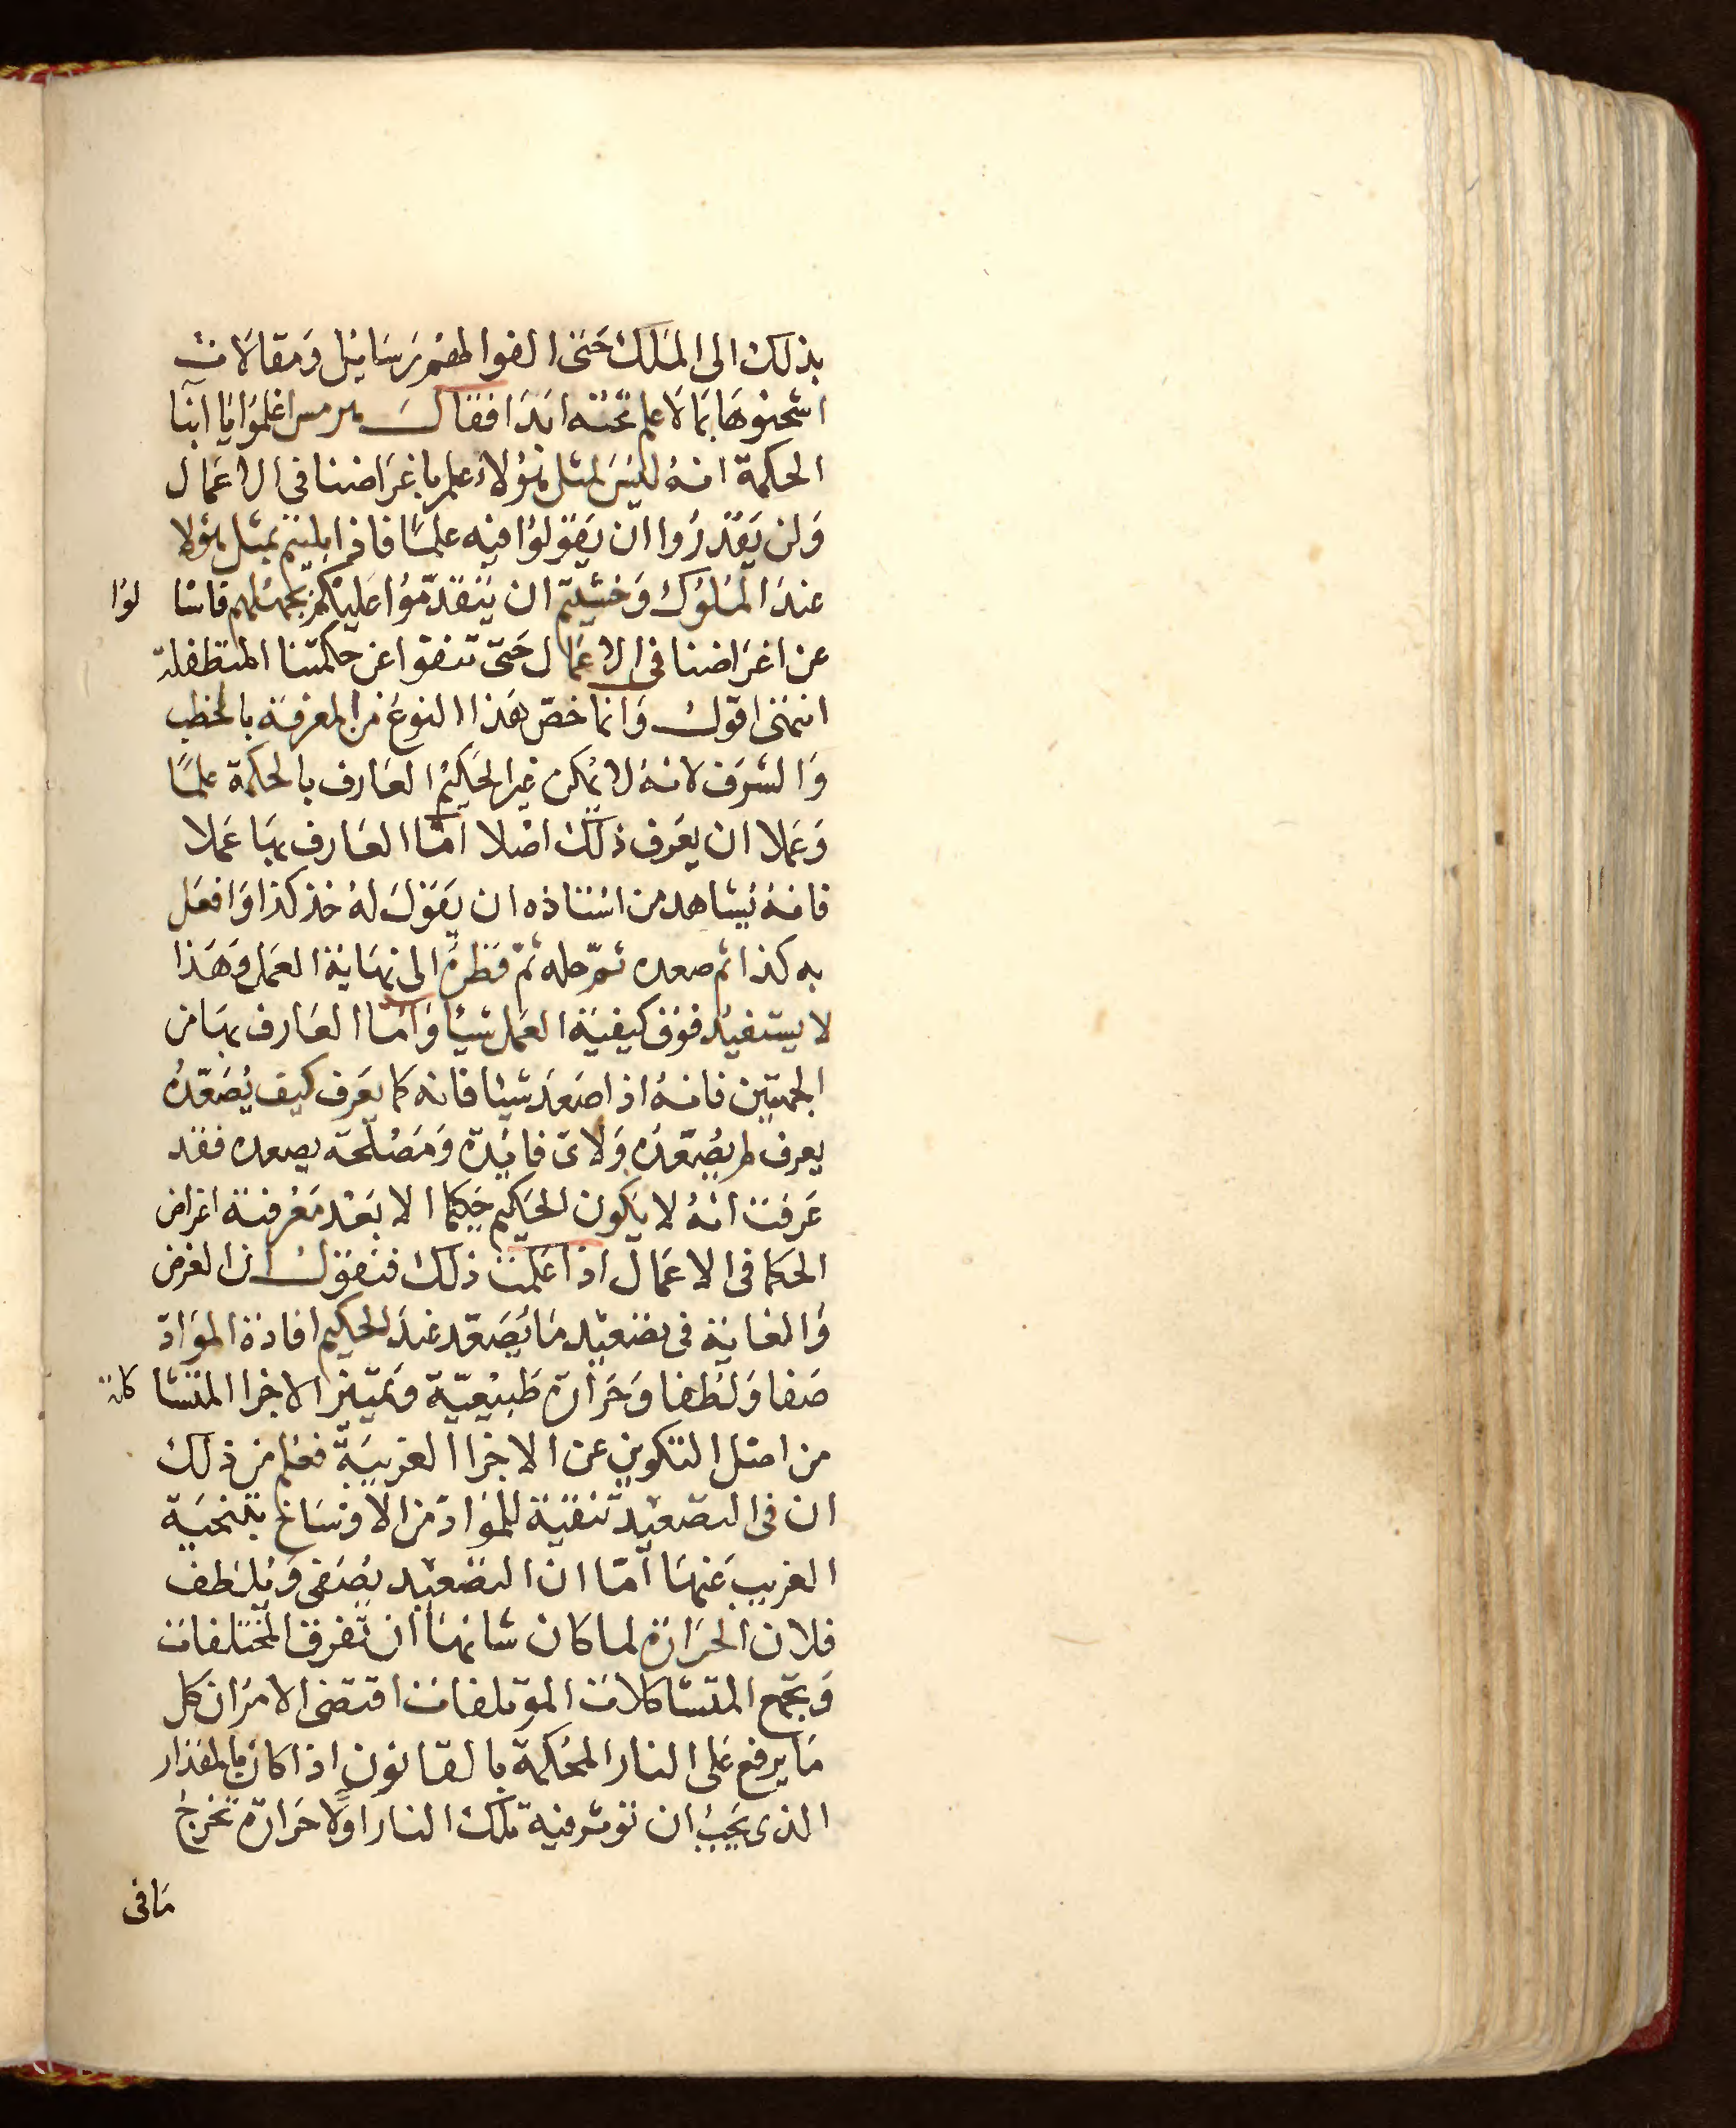 بذلك الى الملك حتى الفوا لهم رسايل ومقالات
اشحنوها بما لا علم تحته ابدا فقال هرمس اعلموا يا ابنا
الحكمة انه ليس لمثل هولاء علم باغراضنا في الاعمال
ولن يقدروا ان يقولوا فيه علما فاذا بليتم بمثل هولا
عند الملوك وخشيتم ان يتقدموا عليكم بجهلهم فاسا لوا
عن اغراضنا في الاعمال حتى تنفوا عن حكمتنا المتطفلة
انتهى اقول وانما خص هذا النوع من المعرفة بالخطب
والشرف لانه لا يمكن غير الحكيم العارف بالحكمة علما
وعملا ان يعرف ذلك اصلا امّا العارف بها عملا
فانه يشاهد من استاذه ان يقول له خذ كذا وافعل
به كذا ثم صعده ثم حله ثم قطره الى نهاية العمل وهذا
لا يستفيد فوق كيفية العمل شيا وامّا العارف بها من
الجهتين فانه اذا صعد شيا فانه كما يعرف كيف يُصَعّدُه
يعرف لم يصعّده ولاى فايدة ومصلحة يصعده فقد
عرفت انه لا يكون الحكيم حكيما الا بعد معرفة اغراض
الحكما في الاعمال اذا علمت ذلك فنقول ان الغرض
والغاية في تصعيد ما يُصَعّد عند الحكيم افادة الموادّ
صفا ولطفا وحرارة طبيعيّة وتمييز الاجزا المتشا كلة
من اصل التكوين عن الاجزا الغريبة فعلم من ذلك
ان في التصعيد تنقية للموادّ من الاوساخ بتنحية
الغريب عنها امّا ان التصعيد يصفى ويلطف
فلان الحرارة لما كان شانها ان تفرق المختلفات
وتجمع المتشاكلات الموتلفات اقتضى الامر ان كل
ما يرفع على النار المحكمة بالقانون اذا كان بالمقدار
الذى يجب ان توثر فيه تلك النار اولا حرارة تخرج
ما في